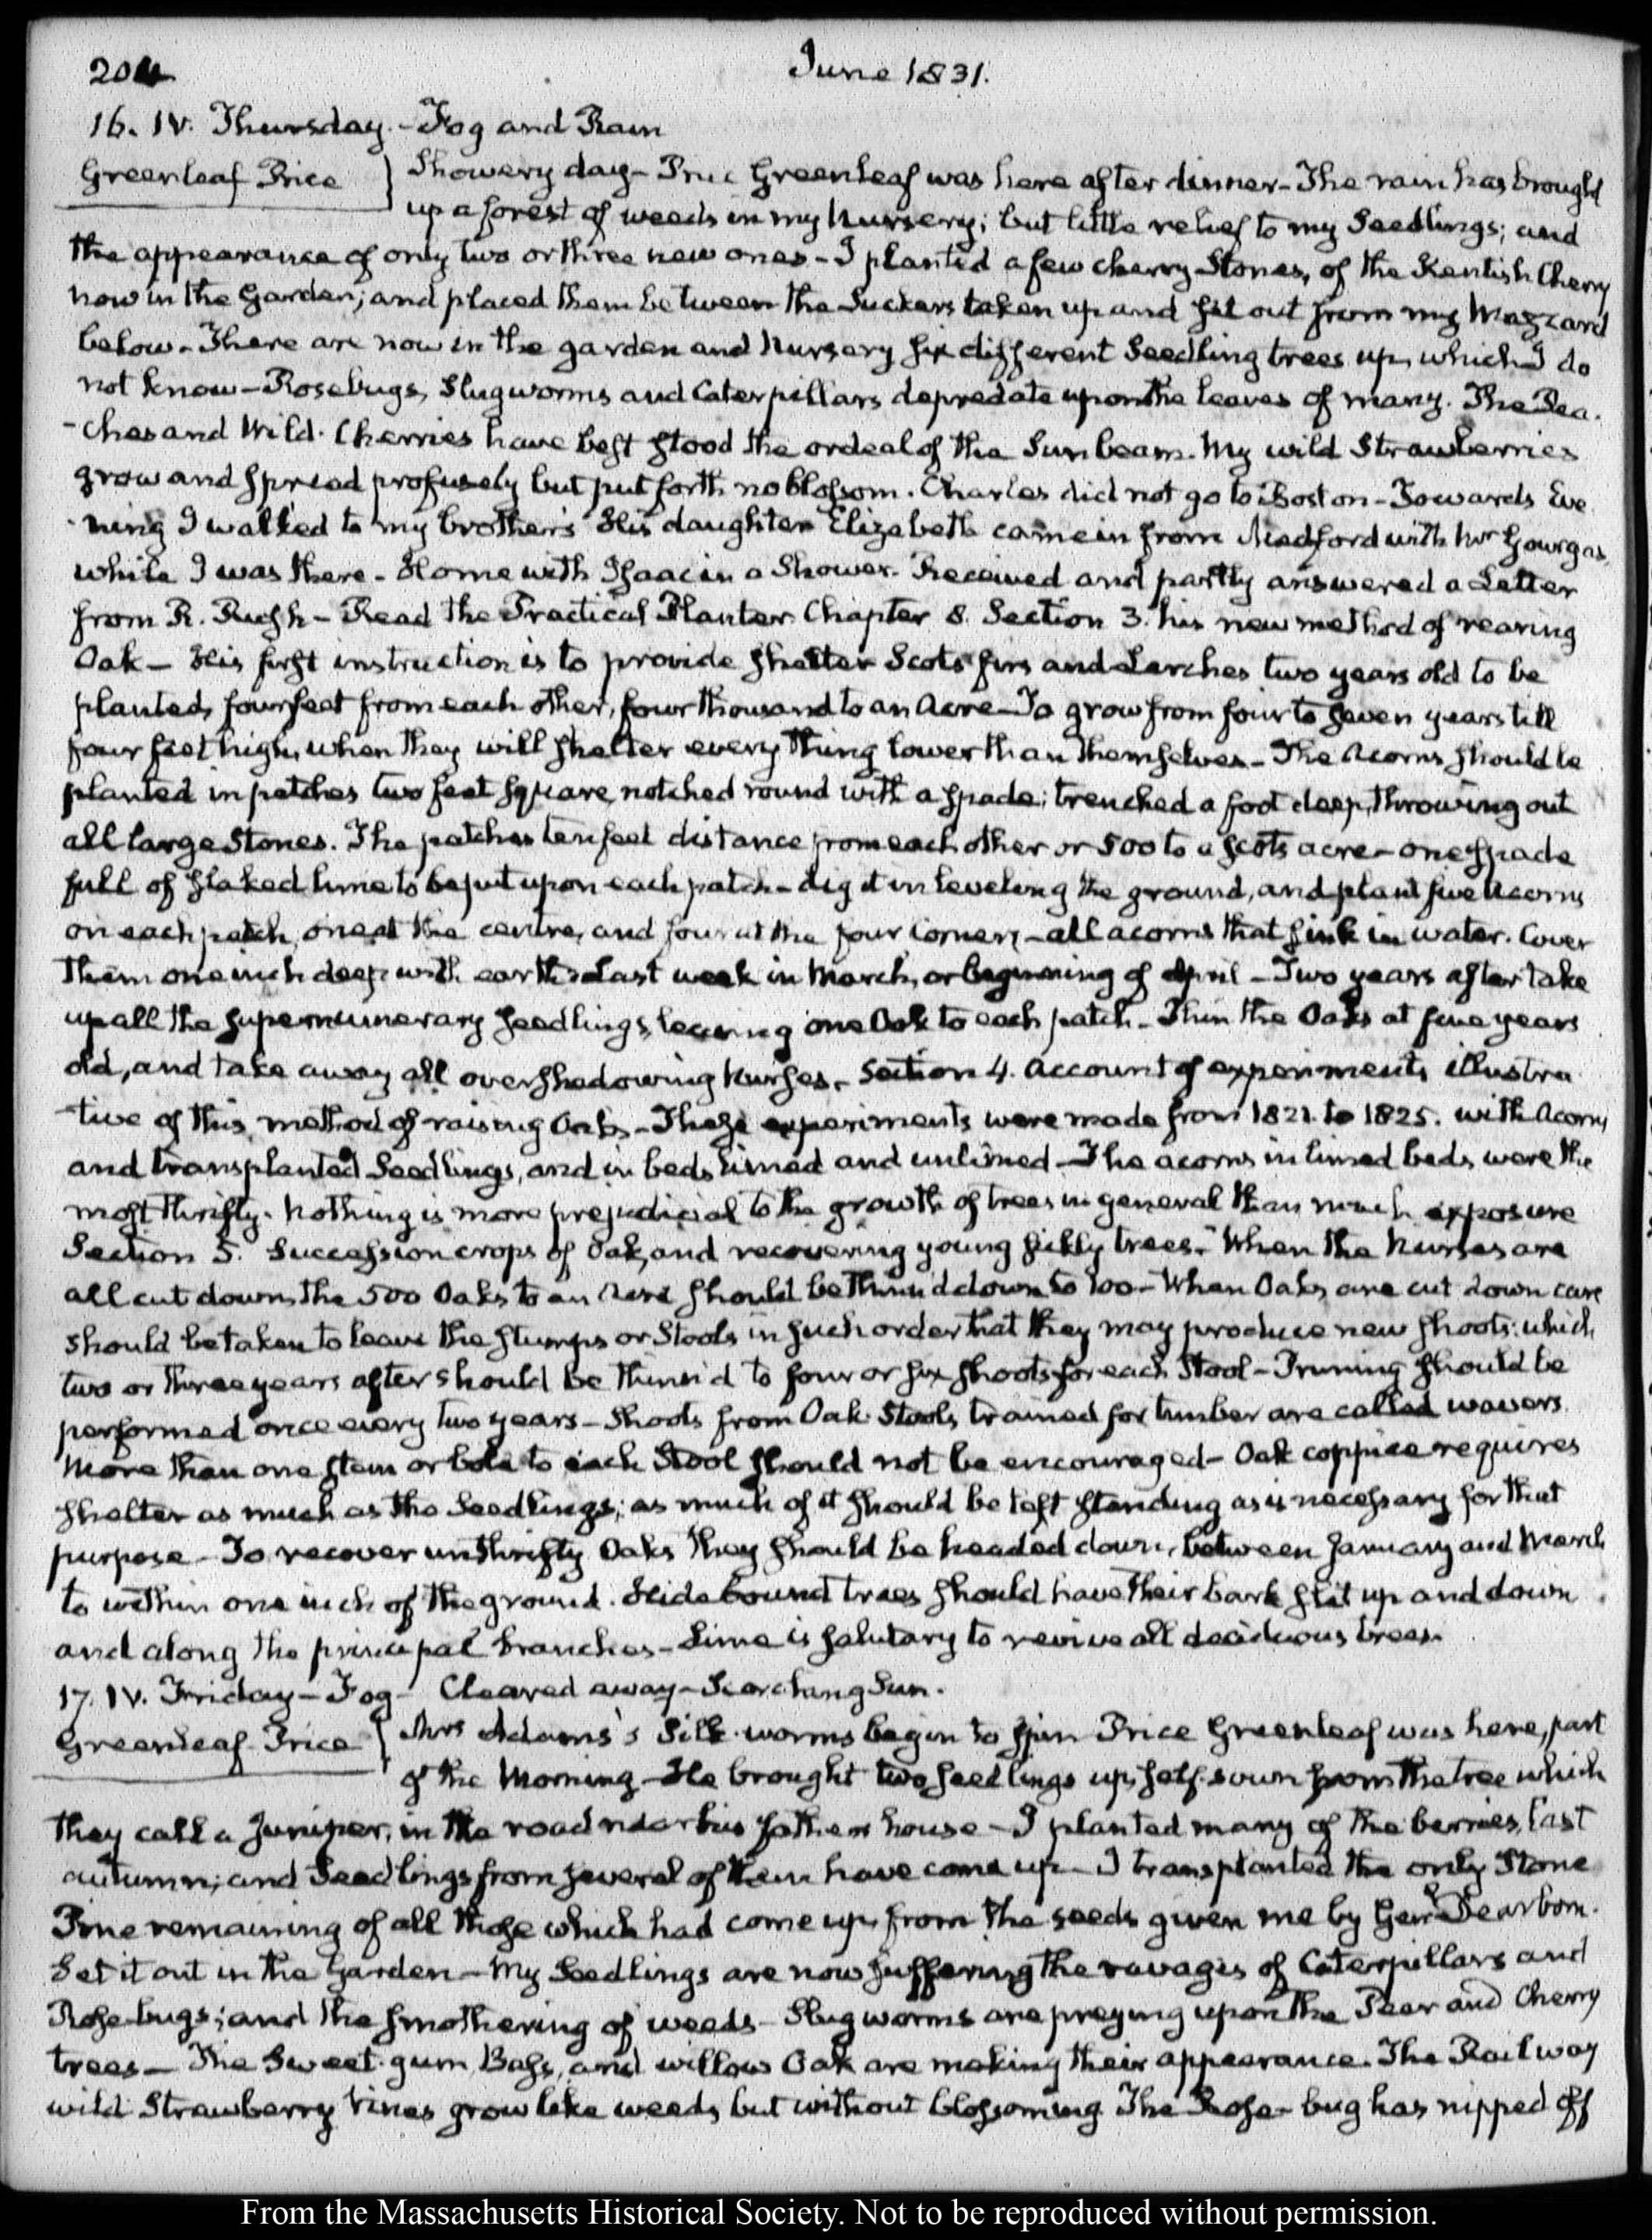 204
June 1831.
16. IV. Thursday. - Fog and Rain
Greenleaf Price
Showery day - Price Greenleaf was here after dinner - The rain has brought
up a forest of weeds in my Nursery; but little relief to my Seedlings; and
the appearance of only two or three new ones - I planted a few cherry Stones, of the Kentish Cherry
now in the Garden; and placed them between the Suckers taken up and set out from my Mazzard
below. There are now in the garden and Nursery six different Seedling trees up, which I do
not know - Rosebugs, Slugworms and Caterpillars depredate upon the leaves of many. The Pea-
-ches and Wild-Cherries have best stood the ordeal of the Sun beam. My wild Strawberries
grow and spread profusely but put forth no blossom. Charles did not go to Boston - Towards Eve
-ning I walked to my brother's His daughter Elizabeth came in from Medford with Mr Gourgas,
while I was there - Home with Isaac in a Shower. Received and partly answered a Letter
from R. Rush - Read the Practical Planter Chapter 8. Section 3. his new method of rearing
Oak - His first instruction is to provide shelter Scots firs and Larches two years old to be
planted, four feet from each other, four thousand to an Acre - To grow from four to seven years till
four feet high, when they will shelter every thing lower than themselves - The Acorns should be
planted in patches two feet square, notched round with a spade; trenched a foot deep, throwing out
all large Stones. The patches ten feet distance from each other or 500 to a Scots acre - one spade
full of slaked lime to be put upon each patch - dig it in leveling the ground, and plant five Acorns
on each patch, one at the centre, and four at the four corners - all acorns that sink in water. Cover
them one inch deep with earth Last week in March, or beginning of April - Two years after take
up all the supernumerary seedlings, leaving one Oak to each patch - Thin the Oaks at five years
old, and take away all overshadowing Nurses. - Section 4. Account of experiments illustra
-tive of this method of raising Oaks - These experiments were made from 1821. to 1825. with Acorns,
and transplanted Seedlings, and in beds limed and unlimed - The acorns in limed beds were the
most thrifty. Nothing is more prejudicial to the growth of trees in general than much exposure
Section 5. Succession crops of Oak, and recovering young sickly trees." When the Nurses are
all cut down, the 500 Oaks to an Acre should be thinn'd down to 100 - When Oaks are cut down care
should be taken to leave the stumps or Stools in such order that they may produce new shoots: which
two or three years after should be thinn'd to four or six shoots for each Stool - Pruning should be
performed once every two years - Shoots from Oak Stools, trained for timber are called wavers.
More than one stem or bole to each Stool should not be encouraged - Oak coppice requires
shelter as much as the Seedlings; as much of it should be left standing as is necessary for that
purpose - To recover unthrifty Oaks they should be headed down, between January and March
to within one inch of the ground. Hide bound trees should have their bark slit up and down
and along the principal branches - Lime is salutary to revive all deciduous trees.
17. IV. Friday - Fog - Cleared away - Scorching Sun.
Greenleaf Price
Mrs Adams's Silk-worms begin to spin Price Greenleaf was here, part
of the Morning - He brought two seedlings up, self-sown from the tree which
they call a Juniper, in the road near his father's house - I planted many of the berries, last
autumn; and Seedlings from several of them have come up - I transplanted the only Stone
Pine remaining of all those which had come up from the seeds given me by Genl Dearborn.
Set it out in the Garden - My Seedlings are now suffering the ravages of Caterpillars and
Rose-bugs; and the smothering of weeds - Slugworms are preying upon the Pear and Cherry
trees - The Sweet-gum, Bass, and willow Oak are making their appearance. The Railway
wild Strawberry Vines grow like weeds, but without blossoming The Rose-bug has nipped off
From the Massachusetts Historical Society. Not to be reproduced without permission.